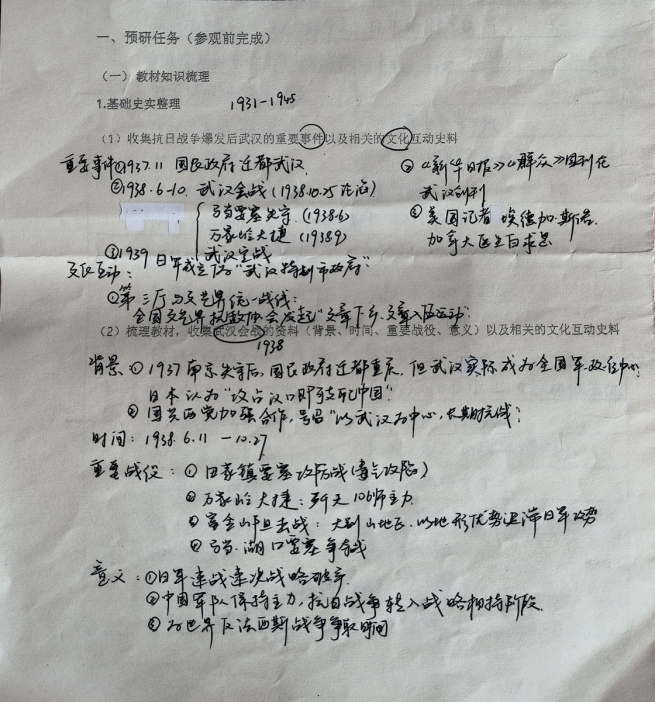 一、预研任务（参观前完成）
（一）教材知识梳理
1.基础史实整理 1931-1945
（1）收集抗日战争爆发后武汉的重要事件以及相关的文化互动史料
重要事件①1937.11 国民政府迁都武汉.
②1938.6-10. 武汉会战(1938.10.25沦陷)
马当要塞失守 (1938.6)
万家岭大捷 (1938.9)
武汉空战
③1939 日军成立伪"武汉特别市政府"
②《新华日报》《群众》周刊在
武汉创刊
③美国记者 埃德加·斯诺.
加拿大医生白求恩
文化互动：
①第三厅与文艺界统一战线：
全国文艺界抗敌协会发起"文章下乡、文章入伍运动".
（2）梳理教材，收集武汉会战的资料（背景、时间、重要战役、意义）以及相关的文化互动史料
1938
背景：①1937南京失守后，国民政府迁都重庆. 但武汉实际成为全国军政经中心；
日本认为"攻占汉口即支配中国".
②国共两党加强合作，号召"以武汉为中心，长期抗战；
时间：1938.6.11 —10.27
重要战役：①田家镇要塞攻防战(毒气攻陷)
②万家岭大捷：歼灭106师主力.
③富金山阻击战：大别山地区.以地形优势迟滞日军攻势
④马当.湖口要塞争夺战
意义：①日军速战速决战略破产.
②中国军队保持主力，抗日战争转入战略相持阶段.
③为世界反法西斯战争争取时间